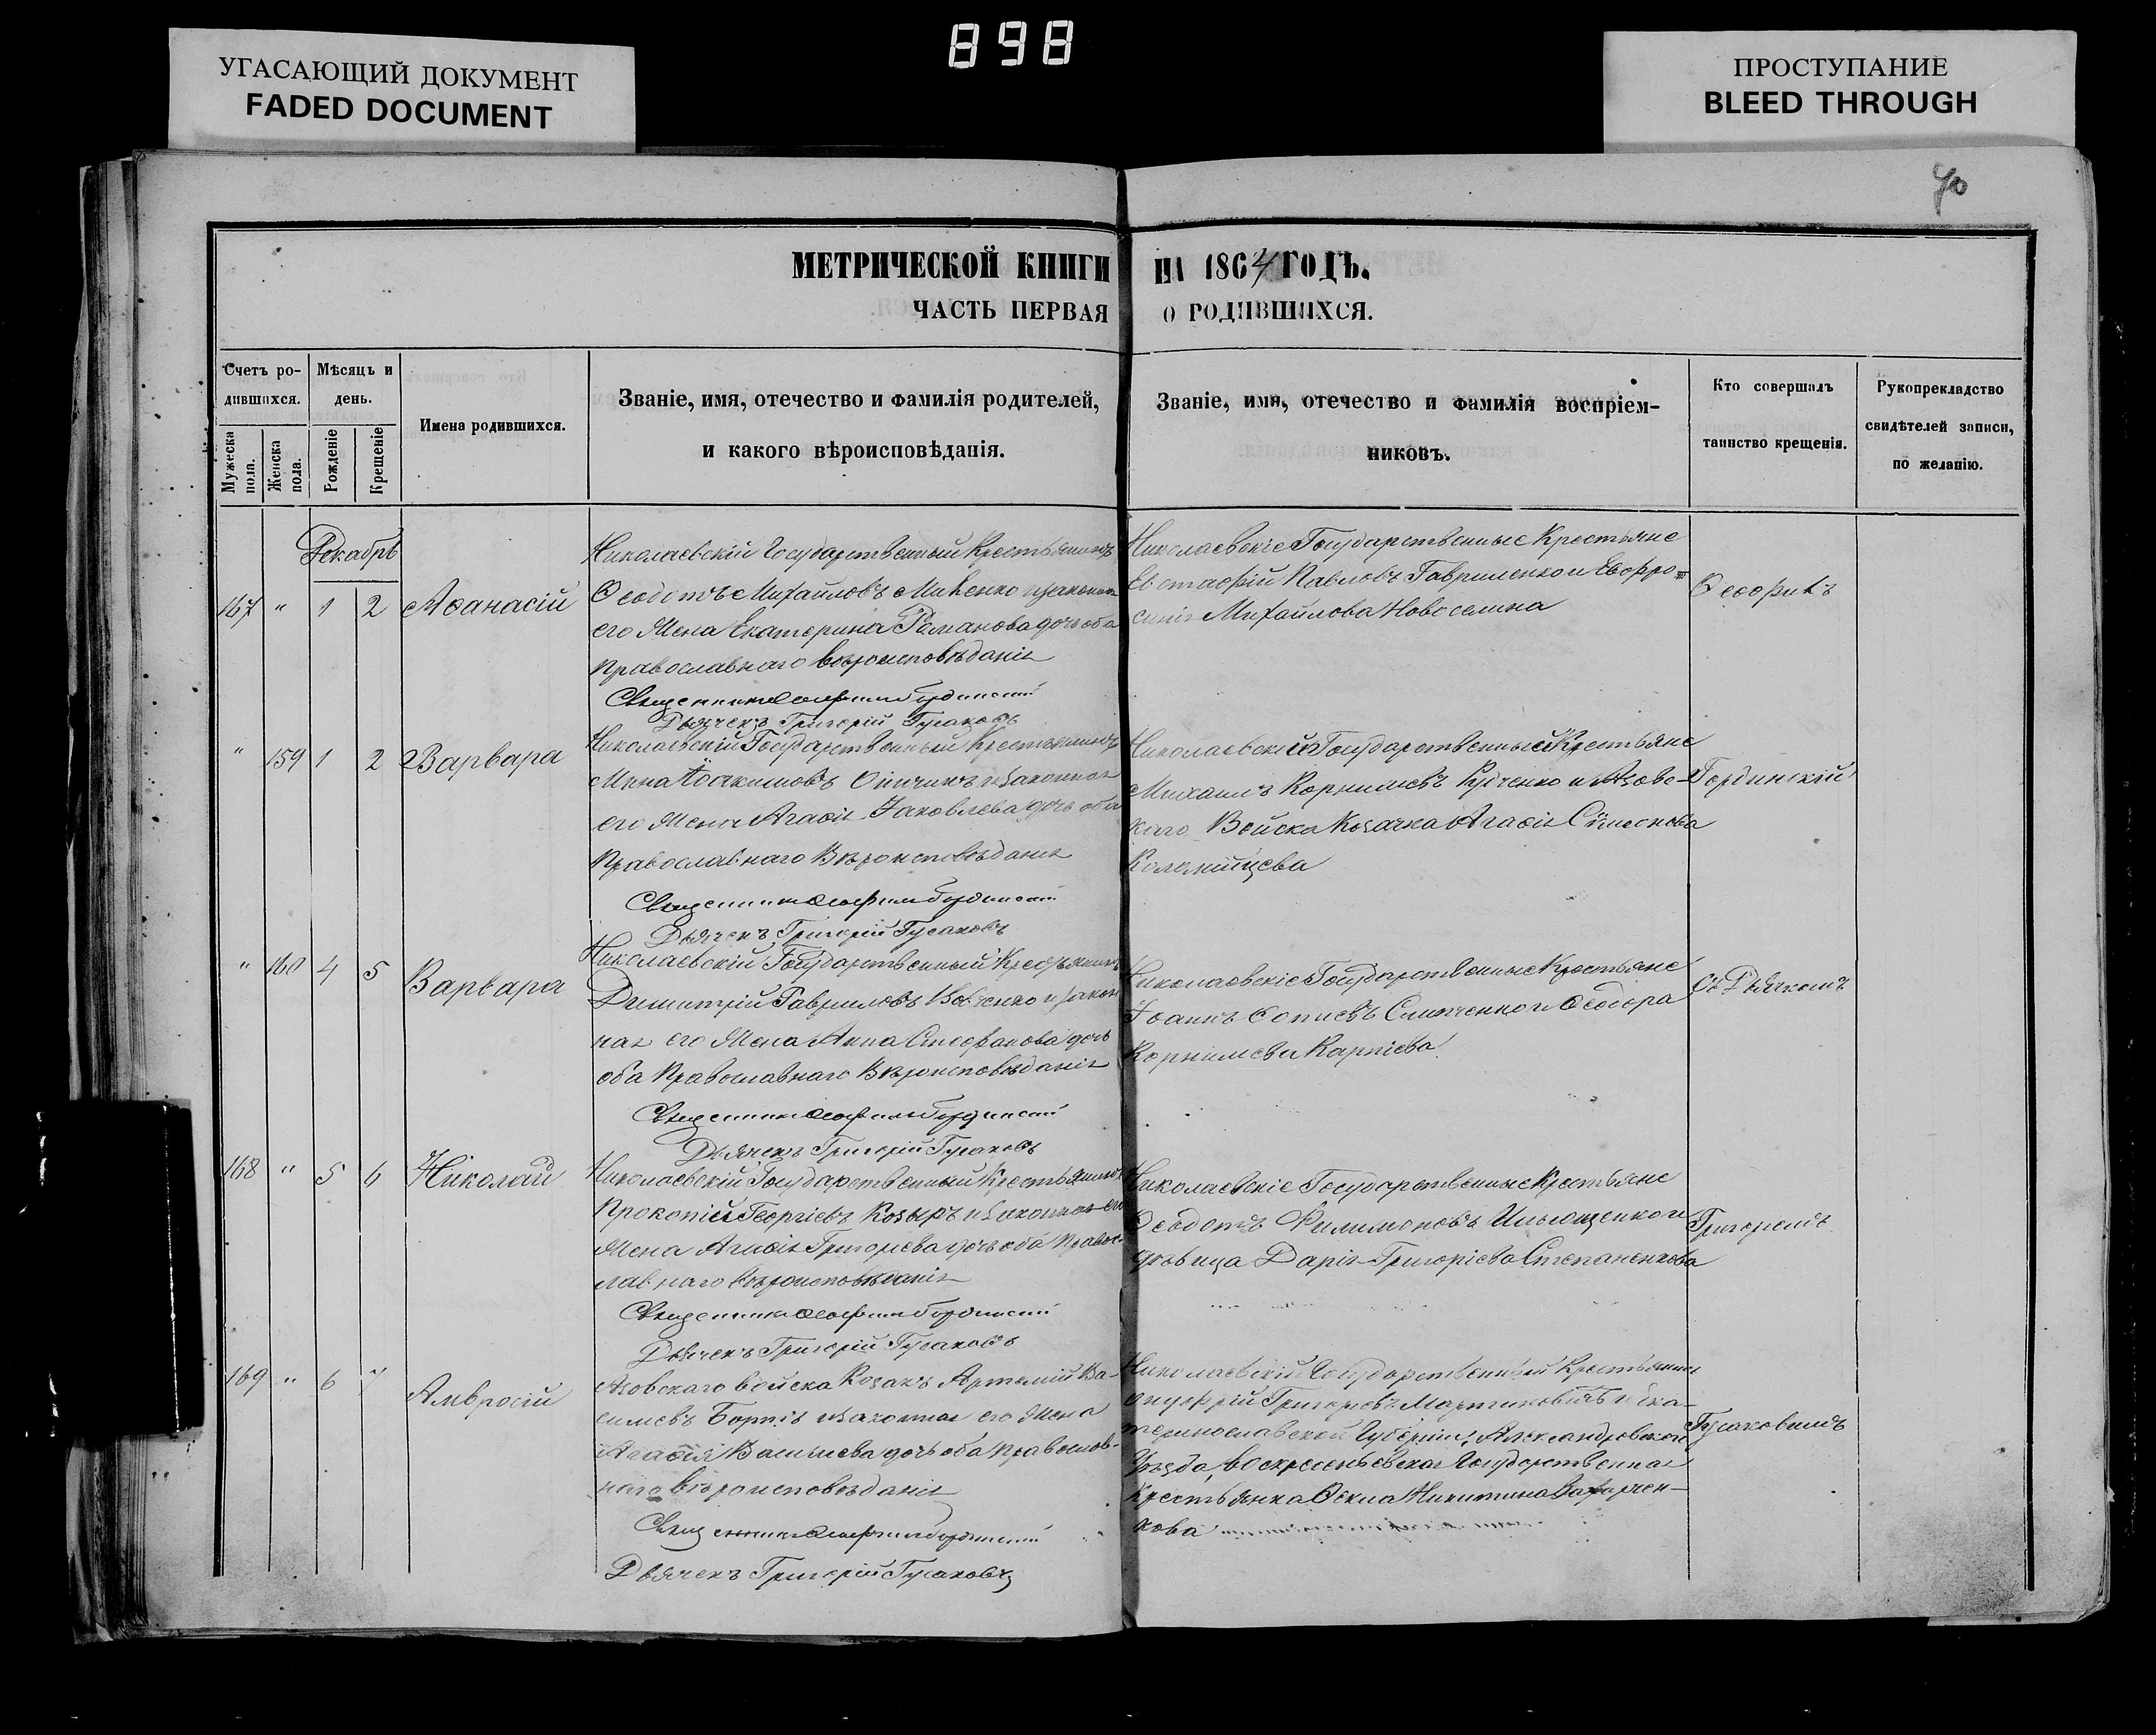 898
УГАСАЮЩИЙ ДОКУМЕНТ
FADED DOCUMENT
ПРОСТУПАНИЕ
BLEED THROUGH
40
МЕТРИЧЕСКОЙ КНИГИ НА 1864 ГОДЪ.
ЧАСТЬ ПЕРВАЯ О РОДИВШИХСЯ.
Счетъ ро-
дившихся.
Мѣсяцъ и
день.
Мужеска
пола.
Женска
пола.
Рожденіе
Крещеніе
Имена родившихся.
Званіе, имя, отечество и фамилія родителей,
и какого вѣроисповѣданія.
Званіе, имя, отечество и фамилія воспріем-
никовъ.
Кто совершалъ
таинство крещенія.
Рукоприкладство
свидѣтелей записи,
по желанію.
Декабрь
167 " 1 2 Аѳанасій
Николаевскій Государственный Крестьянинъ
Ѳеодотъ Михайловъ и законная
его Жена Екатерина Романова дочь оба
Православнаго вѣроисповѣданія
Священникъ Гординскій
Дьячекъ Григорій Гусаковъ
Николаевскіе Государственные Крестьяне
Евстафій Павловъ Гавриленко и Евфро-
синія Михайлова Новоселина
Ѳеофилъ
" 159 1 2 Варвара
Николаевскій Государственный Крестьянинъ
Мина Іоакимовъ и законная
его Жена Агафія Іаковлева дочь оба
Православнаго Вѣроисповѣданія
Священникъ Гординскій
Дьячекъ Григорій Гусаковъ
Николаевскій Государственный Крестьяне
Михаилъ Корниліевъ и Азовс-
каго Войска Козачка Агафія Сѵмеонова
Коломійцева
Гординскій
" 160 4 5 Варвара
Николаевскій Государственный Крестьянинъ
Димитрій Гавриловъ и закон
ная его Жена Анна Стефанова дочь
оба Православнаго Вѣроисповѣданія
Священникъ Гординскій
Дьячекъ Григорій Гусаковъ
Николаевскіе Государственные Крестьяне
Іоаннъ и Ѳеодора
Корниліева Карпіева
Съ Дьячкомъ
168 " 5 6 Николай
Николаевскій Государственный Крестьянинъ
Прокопій Георгіевъ Козыръ и законная его
Жена Агафія Григорьева дочь оба Правос-
лавнаго вѣроисповѣданія
Священникъ Гординскій
Дьячекъ Григорій Гусаковъ
Николаевскіе Государственные Крестьяне
Ѳеодотъ Филимоновъ Ильющенко и
дѣвица Дарія Григоріева Степаненкова
Григоріемъ
169 " 6 7 Амвросій
Азовскаго войска Козакъ Артемій Ва-
силіевъ и законная его Жена
Агафія Василіева дочь оба Православ-
наго вѣроисповѣданія
Священникъ Гординскій
Дьячекъ Григорій Гусаковъ
Николаевскій Государственный Крестьянинъ
Онуфрій Григорьевъ и Ека-
теринославской Губерніи, Александровскаго
Уѣзда, Воскресеньевская Государственная
Крестьянка Ѳекла Никитина Захарчен-
кова
Гусаковымъ